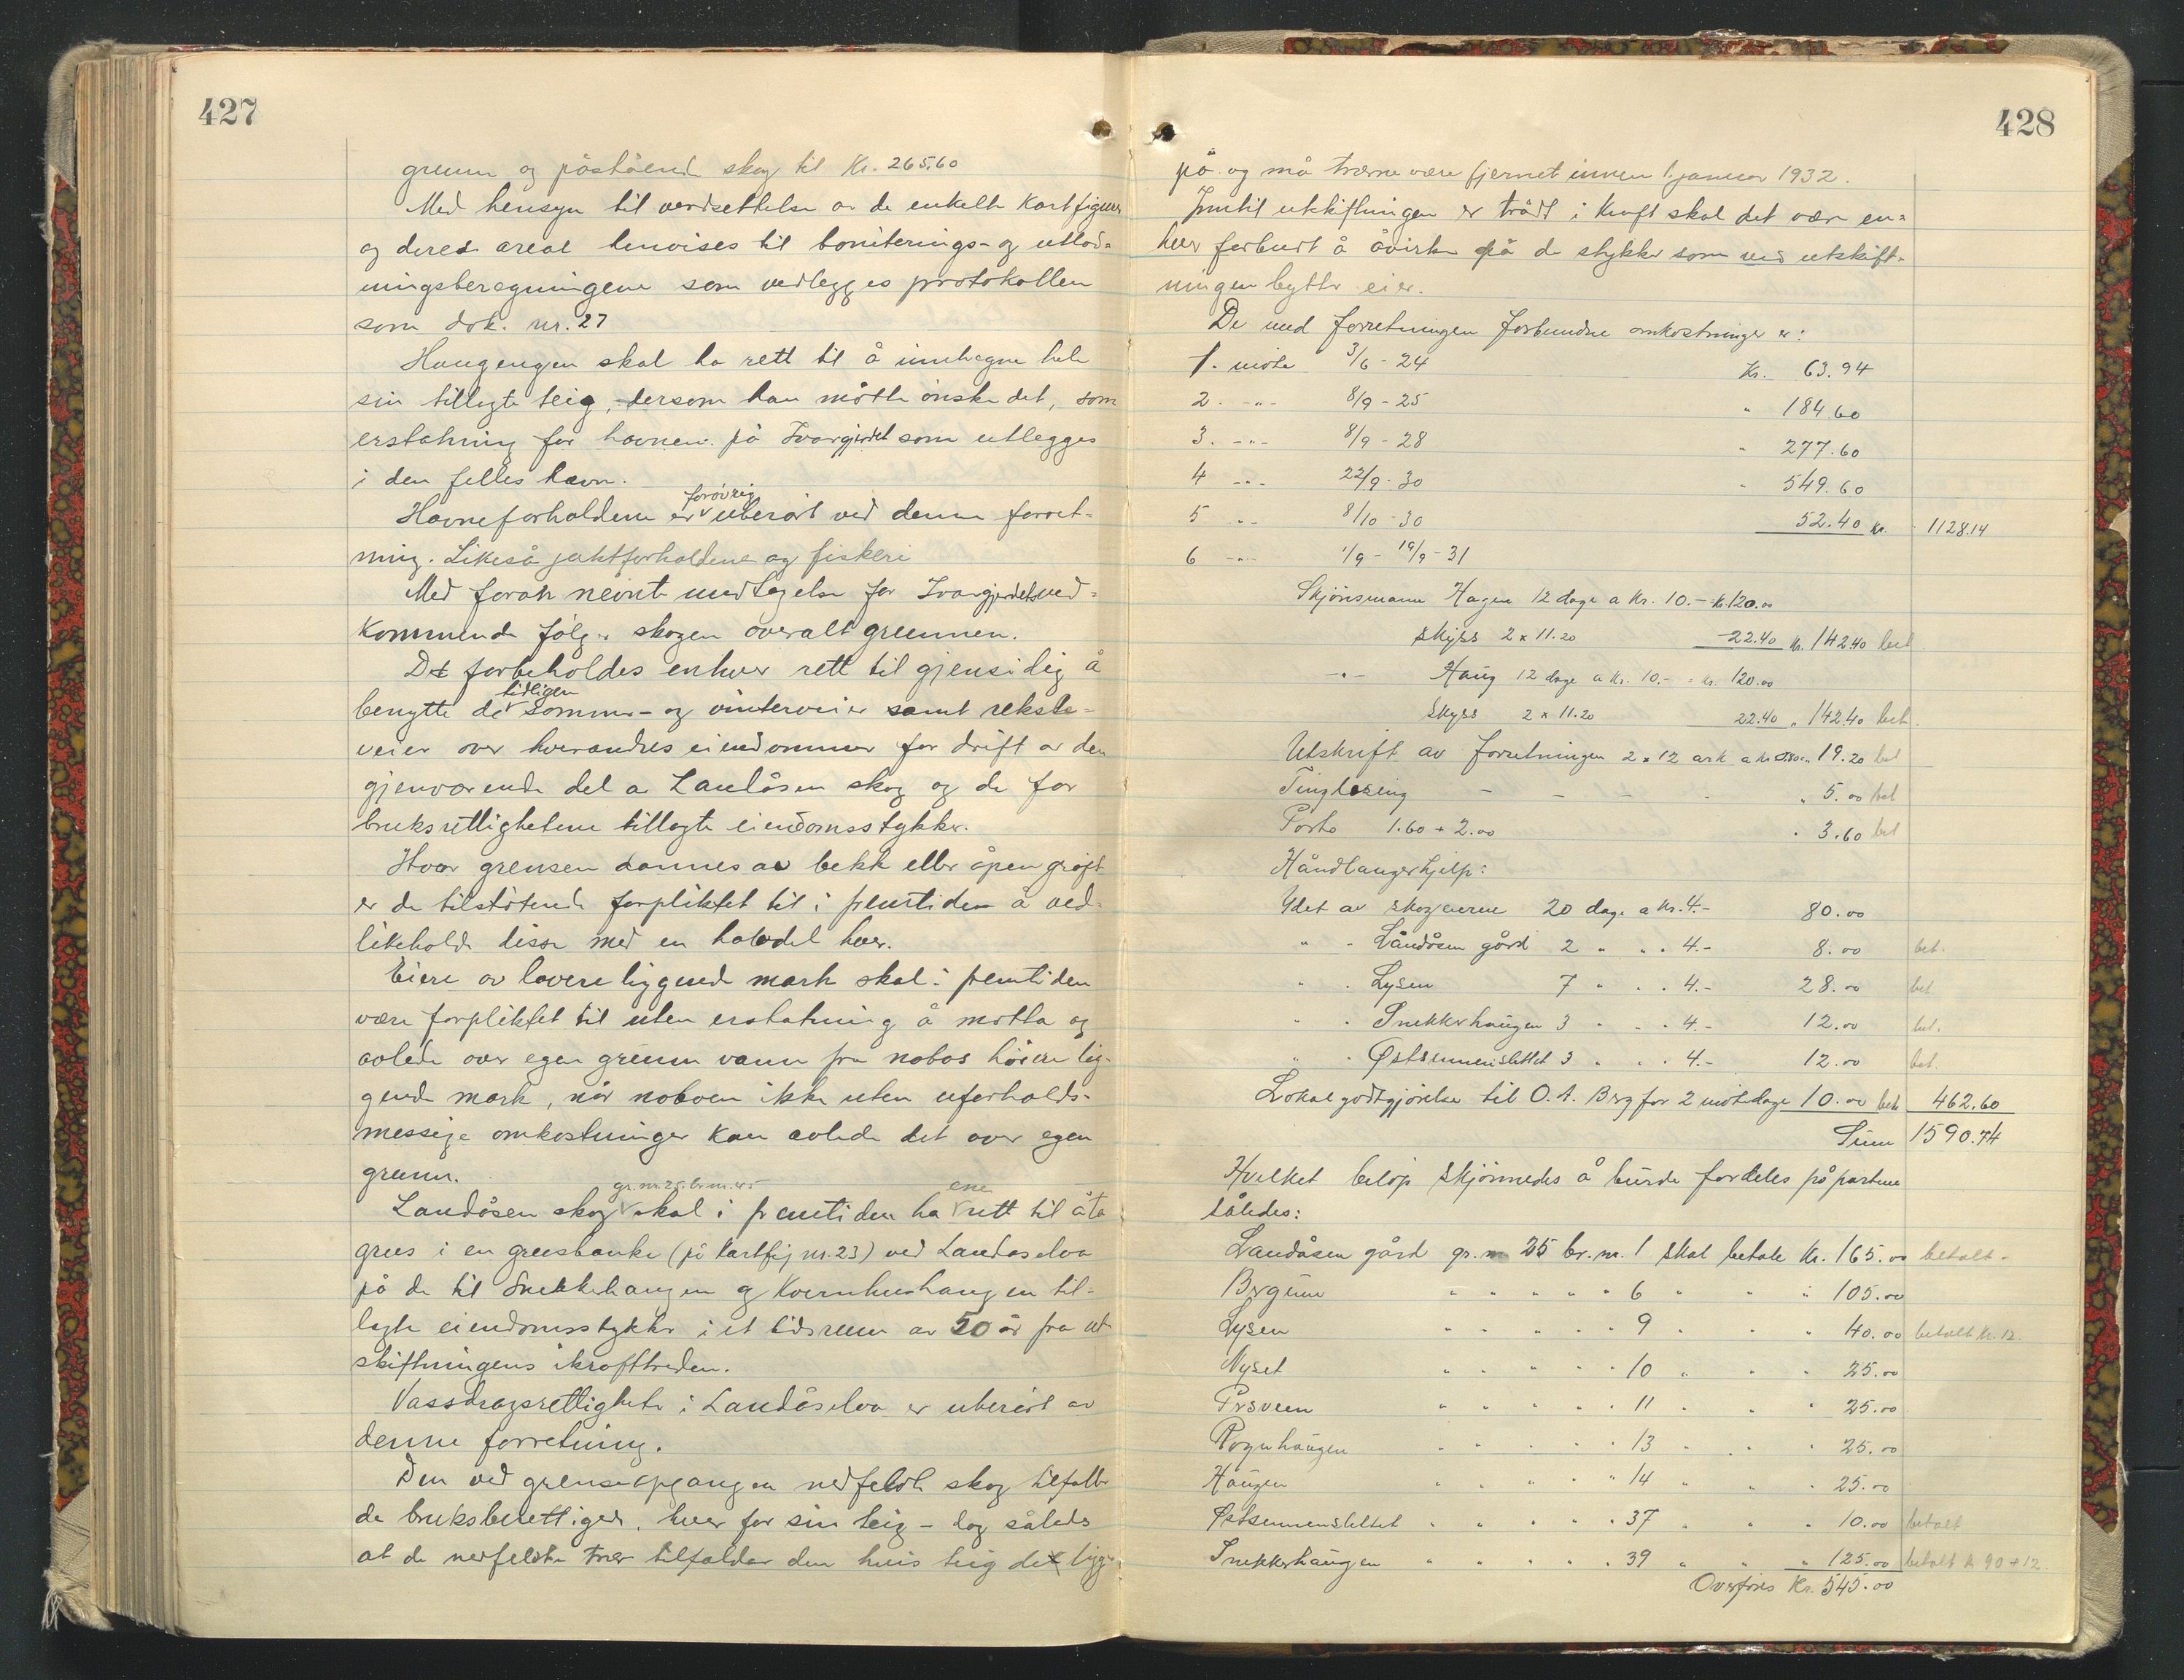 427
grunn og påstående skog til Kr. 265.60
Med hensyn til verdsettelse av de enkelte kartfigurer
og deres areal henvises til boniterings- og utlod-
ningsberegningene som vedlegges protokollen
som dok. nr. 27
Haugengen skal ha rett til å innhegne hele
sin tillagte teig, dersom han måtte ønske det, som
erstatning for havnen på Ivargjerdet som utlegges
i den felles havn.
Havneforholdene er forøvrig uberørt ved denne forret-
ning. Likeså jaktforholdene og fiskeri
Med foran nevnte undtagelse for Ivargjerdets ved-
kommende følger skogen overalt grunnen.
Det forbeholdes enhver rett til gjensidig å
benytte de tidligere sommer- og vinterveier samt rekste-
veier over hverandres eiendommer for drift av den
gjenværende del av Landåsen skog og de for
bruksrettighetene tillagte eiendomsstykker.
Hvor grensen dannes av bekk eller åpen grøft
er de tilstøtende forpliktet til i fremtiden å ved-
likeholde disse med en halvdel hver.
Eiere av lavere liggende mark skal i fremtiden
være forpliktet til uten erstatning å motta og
avlede over egen grunn vann fra nabos høiere lig-
gende mark, når naboen ikke uten uforholds-
messige omkostninger kan avlede det over egen
grunn.
Landåsen skog gr. nr. 25. br. nr. 45 skal i fremtiden ha ene rett til å ta
grus i en grusbanke (på kartfig nr. 23) ved Landåselva
på de til Snekkehaugen og Kvernhushaugen til-
lagte eiendomsstykker i et tidsrum av 50 år fra ut-
skiftningens ikrafttreden.
Vassdragsrettigheter i Landåselva er uberørt av
denne forretning.
Den ved grenseopgangen nedfelte skog tilfaller
de bruksberettigede, hver for sin teig - dog således
at de nedfelte trær tilfaller den hvis teig de ligger
428
på og må trærne være fjernet innen 1. januar 1932.
Inntil utskiftningen er trådt i kraft skal det være en-
hver forbudt å åvirke på de stykker som ved utskift-
ningen bytter eier.
De med forretningen forbundne omkostninger er:
1. møte 3/6 - 24 Kr. 63.94
2. -"- 8/9 - 25 " 184 60
3. -"- 8/9 - 28 " 277.60
4 -"- 22/9 - 30 " 549.60
5 -"- 8/10 - 30 52.40 Kr. 1128.14
6 -"- 1/9 - 19/9 - 31
Skjønsmann Hagen 12 dage a Kr. 10.- Kr. 120.00
Skyss 2 x 11.20 22.40 Kr. 142.40 bet
-"- Haug 12 dage a Kr. 10.- = Kr. 120.00
Skyss 2 x 11.20 22.40 " 142.40 bet.
Utskrift av forretningen 2 x 12 ark a Kr 0.80 = " 19.20 bet
Tinglesing - - - - " 5.00 bet
Porto 1.60 + 2.00 " 3.60 bet
Håndlangerhjelp:
Ydet av skogeierne 20 dage a Kr. 4.- 80.00
" " Landåsen gård 2 " " " 4.- 8.00 bet.
" " Lysen 7 " " " 4.- 28.00 bet
" " Snekkerhaugen 3 " " " 4.- 12.00 bet.
" " Østsunnenslettet 3 " " " 4.- 12.00 bet.
Lokalgodtgjørelse til O. A. Berg for 2 møtedage 10.00 bet 462.60
Sum 1590.74
Hvilket beløp skjønnedes å burde fordeles på partene
således:
Landåsen gård gr. nr 25 br. nr. 1 skal betale Kr. 165.00 betalt -
Bergum " " " " " 6 " " " 105.00
Lysen " " " " " 9 " " " 40.00 betalt Kr. 12.
Nyset " " " " " 10 " " " 25.00
Prsveen " " " " " 11 " " " 25.00
Rognhaugen " " " " " 13 " " " 25.00
Haugen " " " " " 14 " " " 25.00
Østsunnenslettet " " " " " 37 " " " 10.00 betalt
Snekkerhaugen " " " " " 39 " " " 125.00 betalt k 90 + 12.
Overføres Kr. 545.00